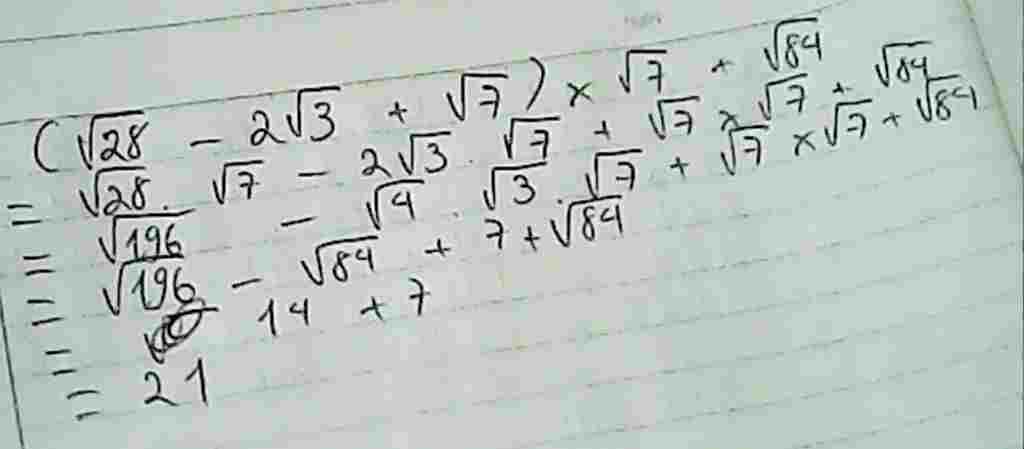 (√28 − 2√3 + √7) × √7 + √84
= √28 . √7 − 2√3 . √7 + √7 × √7 + √84
= √196 − √4 . √3 . √7 + √7 × √7 + √84
= √196 − √84 + 7 + √84
= 14 + 7
= 21